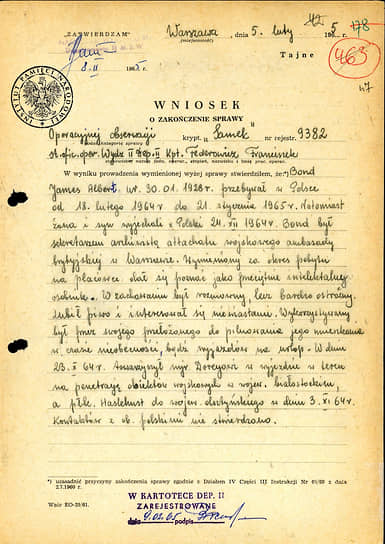 "ZATWIERDZAM"
Warszawa, dnia 5. luty 1965 r.
(miejscowość)
8. II 1965 r.
Tajne
463
178
INSTYTUT PAMIĘCI NARODOWEJ
WNIOSEK
O ZAKOŃCZENIE SPRAWY
Operacyjnej obserwacji krypt. "Samek" nr rejestr. 9382
st. of. oper. Wydz II Dep. II Kpt. Federowicz Franciszek
W wyniku prowadzenia wymienionej wyżej sprawy stwierdziłem, że: *) Bond
James Albert, ur. 30.01.1928r. przebywał w Polsce
od 18. lutego 1964r do 21. stycznia 1965r. Natomiast
żona i syn wyjechali z Polski 24. VII 1964r. Bond był
sekretarzem archiwistą attachatu wojskowego ambasady
brytyjskiej w Warszawie. Wymieniony za okres pobytu
na placówce dał się poznać jako przeciętnie intelektualny
osobnik. W zachowaniu był rozmowny, lecz bardzo ostrożny.
Lubił piwo i interesował się niewiastami. Wykorzystywany
był przez swojego przełożonego do pilnowania jego mieszkania
w czasie nieobecności, bądź wyjazdów na urlop. W dniu
23. X 64r. towarzyszył mjr. w wyjeździe w teren
na penetrację obiektów wojskowych w wojew. białostockim,
a płk. Haslehust do wojew. olsztyńskiego w dniu 3. XI 64r.
Kontaktów z ob. polskimi nie stwierdzono.
*) uzasadnić przyczyny zakończenia sprawy zgodnie z Działem IV Części III Instrukcji Nr 03/60 z dnia
2.7.1960 r.
Wzór EO-25/61.
W KARTOTECE DEP. II
ZAREJESTROWANE
data 9.02.65 podpis